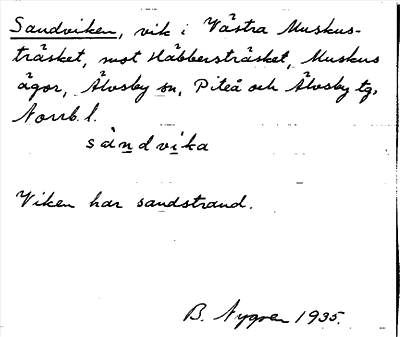 Sandviken, vik i Västra Muskus-
träsket, mot Häbbersträsket, Muskus
ägor, Älvsby sn, Piteå och Älvsby tg,
Norrb. l.
sàndvika
Viken har sandstrand.
B. Nygren 1935.